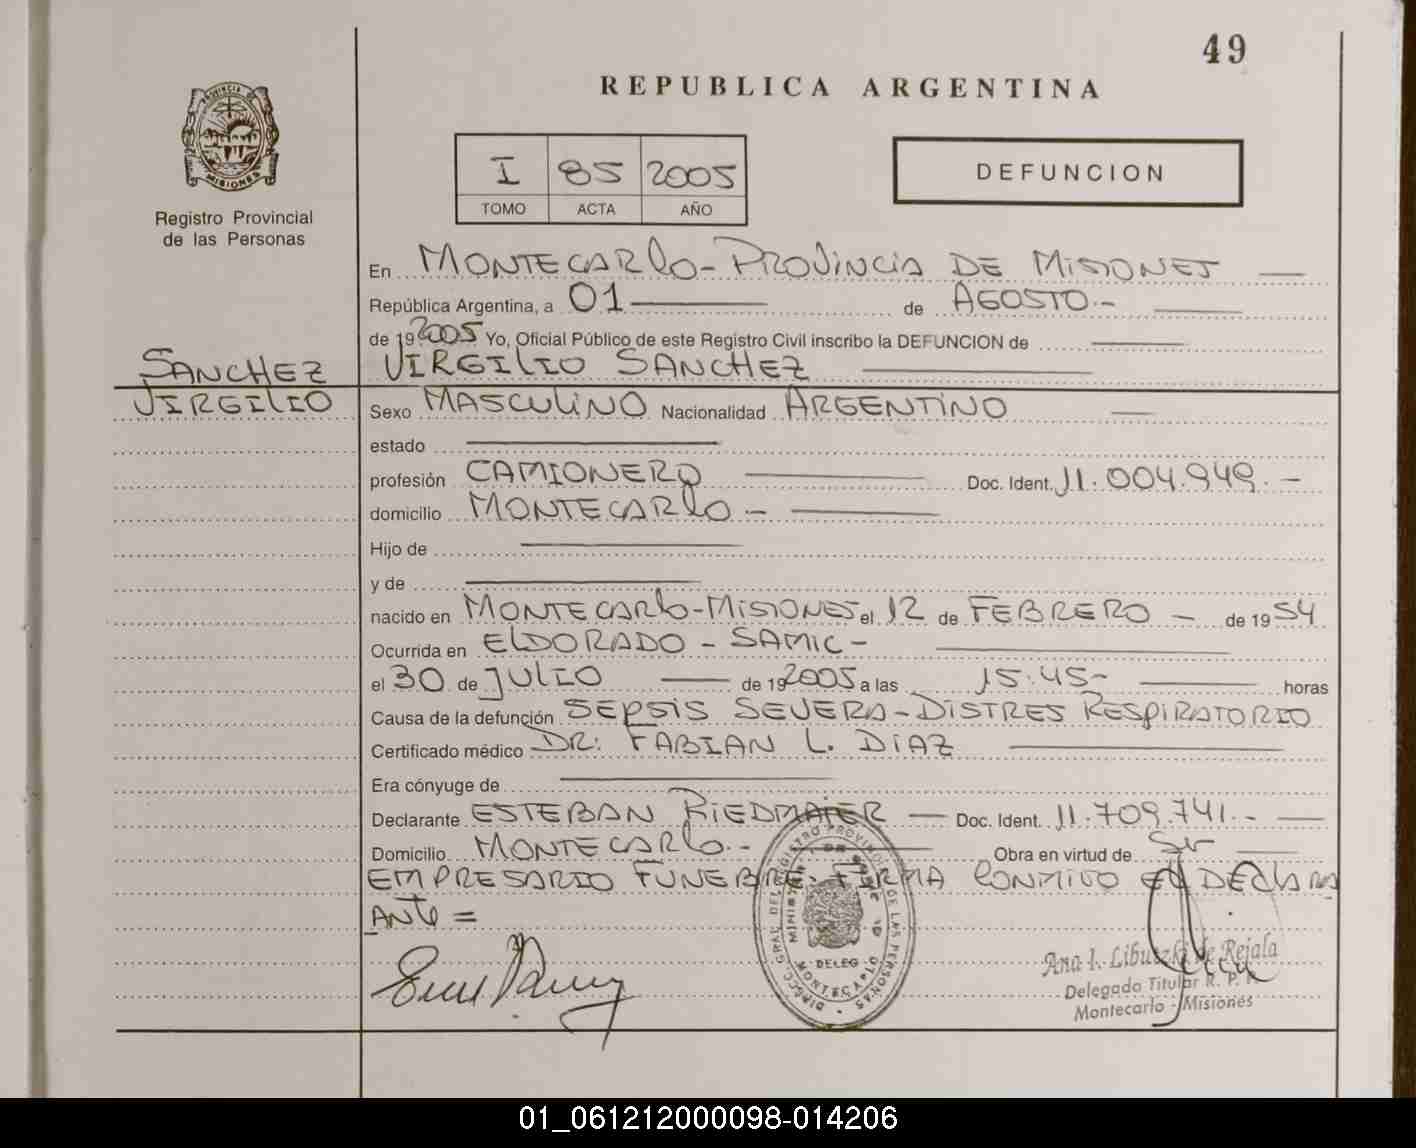 49
REPUBLICA ARGENTINA
PROVINCIA DE
MISIONES
Registro Provincial
de las Personas
I 85 2005
TOMO ACTA AÑO
DEFUNCION
En MONTECARLO - PROVINCIA DE MISIONES
República Argentina, a 01 de AGOSTO.-
de 19 2005 Yo, Oficial Público de este Registro Civil inscribo la DEFUNCION de
SANCHEZ
VIRGILIO SANCHEZ
VIRGILIO
Sexo MASCULINO Nacionalidad ARGENTINO
estado
profesión CAMIONERO Doc. Ident. 11.004.949.-
domicilio MONTECARLO -
Hijo de
y de
nacido en MONTECARLO-MISIONES el 12 de FEBRERO - de 19 54
Ocurrida en ELDORADO - SAMIC -
el 30 de JULIO de 19 2005 a las 15.45- horas
Causa de la defunción SEPSIS SEVERA - DISTRES RESPIRATORIO
Certificado médico DR: FABIAN L. DIAZ
Era cónyuge de
Declarante ESTEBAN RIEDMAIER - Doc. Ident. 11.709.741.-
Domicilio MONTECARLO.- Obra en virtud de Ser
EMPRESARIO FUNEBRE. FIRMA CONMIGO EL DECLARA
ANTE =
DIRECC. GRAL. DEL REGISTRO PROVINCIAL DE LAS PERSONAS
DELEG
MONTECARLO
Ana I. Libutzki de Rejala
Delegado Titular R. P. P.
Montecarlo - Misiones
01_061212000098-014206